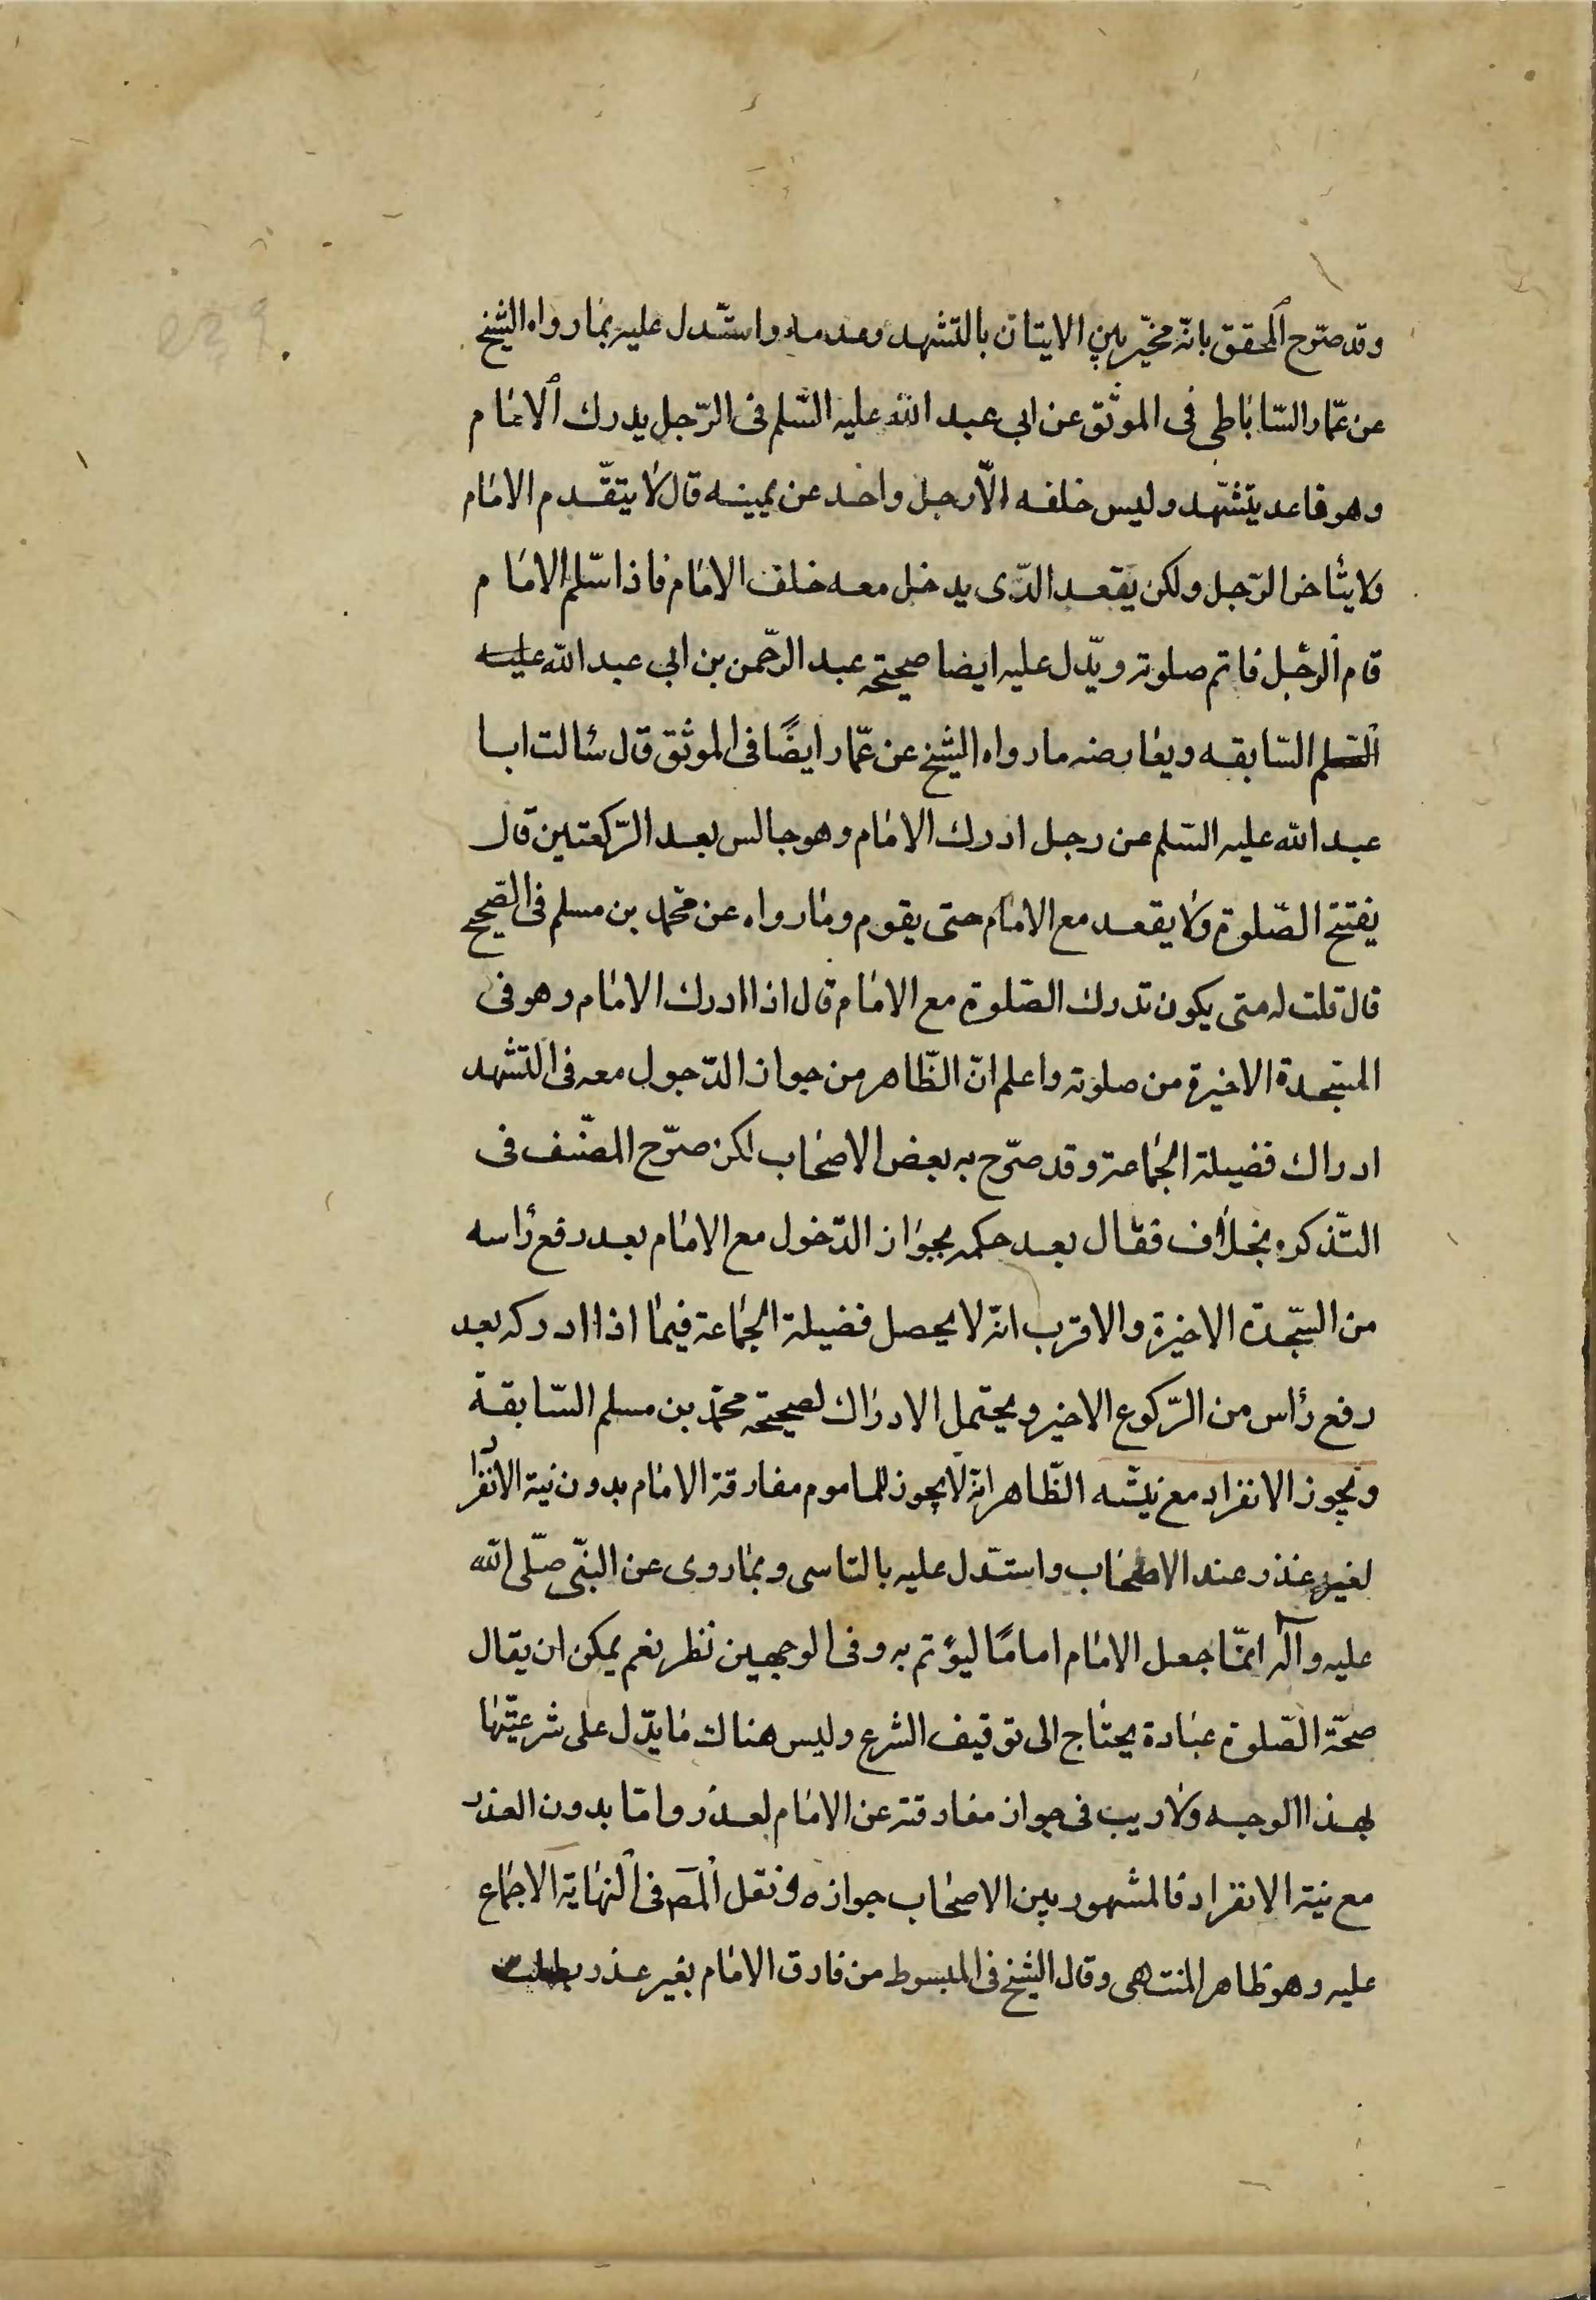 وقد صرّح المحقق بانّه مخيّر بين الايتان بالتشهد وعدمه واستدل عليه بما رواه الشيخ
عن عمّار السّاباطى فى الموثق عن ابى عبد الله عليه السّلم فى الرّجل يدرك الامام
وهو قاعد يتشهّد وليس خلفه الّا رجل واحد عن يمينه قال لا يتقّدم الامام
ولا يتأخر الرّجل ولكن يقعد الذّى يدخل معه خلف الامام فاذا سّلم الامام
قام الرجّل فاتم صلوته ويّدل عليه ايضا صحيحة عبد الرحّمن بن ابى عبد الله عليه
السّلم السّابقه ويعارضه ما رواه الشيخ عن عمّار ايضًا فى الموثق قال سئالت ابا
عبد الله عليه السّلم عن رجل ادرك الامام وهو جالس بعد الرّكعتين قال
يفتتح الصّلوة ولا يقعد مع الامام حتى يقوم وما رواه عن محمّد بن مسلم فى الصّحيح
قال قلت له متى يكون تدرك الصّلوة مع الامام قال اذا ادرك الامام وهو فى
السّجدة الاخيرة من صلوته واعلم انّ الظّاهر من جواز الدّحول معه فى التشهد
ادراك فضيلة الجماعة وقد صرّح به بعض الاصحاب لكن صرّح المصنّف فى
التّذكره بخلاف فقال بعد حكمه بجواز الدّخول مع الامام بعد رفع رأسه
من السّجدة الاخيرة والاقرب انّه لا يحصل فضيلة الجماعة فيما اذا ادركه بعد
رفع رأس من الرّكوع الاخير ويحتمل الادراك لصحيحة محمّد بن مسلم السّابقة
ويجوز الانفراد مع نيّته الظّاهر انّه لا يجوز للماموم مفارقة الامام بدون نية الانفرا د
لغير عذر عند الاصحاب واستدّل عليه بالتاسى وبما روى عن النبّى صلّى الله
عليه وآله انّما جعل الامام امامًا ليؤتم به وفى الوجهين نظر نعم يمكن ان يقال
صحّة الصّلوة عبادة يحتاج الى توقيف الشرع وليس هناك ما يدّل على شرعيّتها
بهذا الوجه ولا ريب فى جواز مفارقته عن الامام لعذر وامّا بدون العذر
مع نية الانفراد فالمشهور بين الاصحاب جوازه ونقل المص فى النهاية الاجماع
عليه وهو ظاهر المنتهى وقال الشيخ فى المبسوط من فارق الامام بغير عذر بطلت